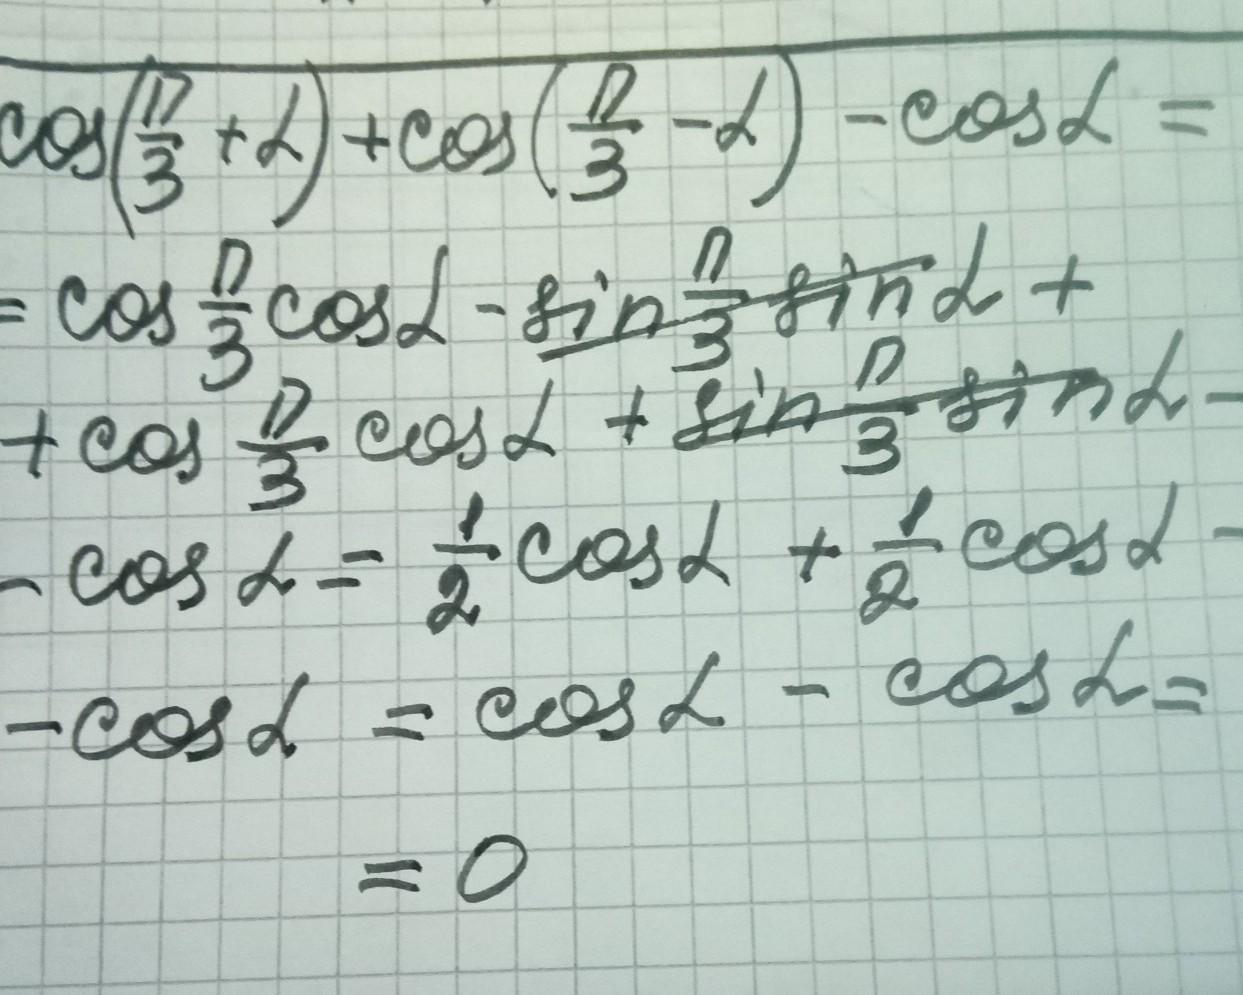 cos(π/3 + α) + cos(π/3 - α) - cosα =
= cos π/3 cosα - sin π/3 sinα +
+ cos π/3 cosα + sin π/3 sinα -
- cosα = 1/2 cosα + 1/2 cosα -
- cosα = cosα - cosα =
= 0